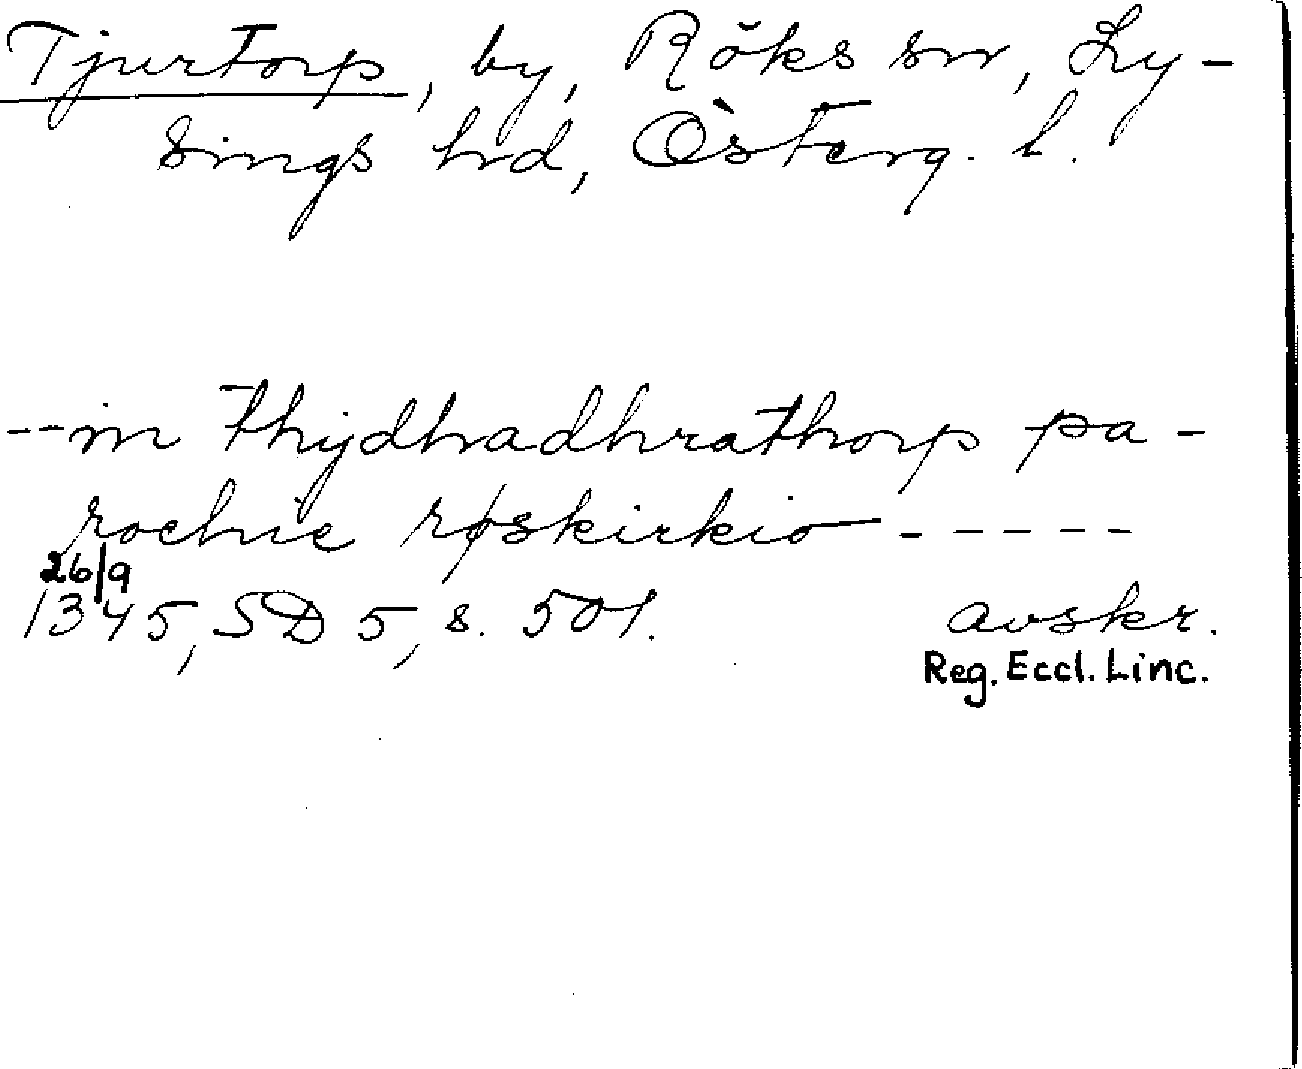 Tjurtorp, by, Röks sn, Ly-
sings hd, Österg. l.
-- in thydhradhrathorp pa-
rochie røskirkio -----
26/9
1345, SD 5, s. 501. avskr.
Reg. Eccl. Linc.